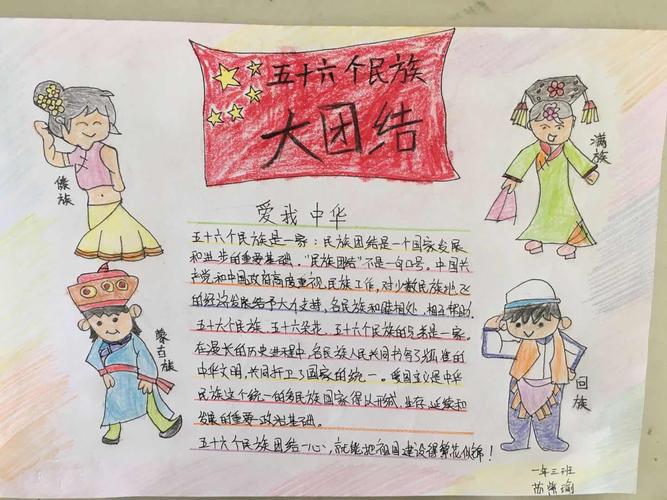 五十六个民族
大团结
傣族
满族
爱我中华
五十六个民族是一家：民族团结是一个国家发展
和进步的重要基础。"民族团结"不是一句口号。中国共
产党和中国政府高度重视民族工作，对少数民族地区
的经济发展给予大力支持，各民族和睦相处，相互帮助。
五十六个民族，五十六朵花，五十六个民族的兄弟是一家。
在漫长的历史进程中，各民族人民共同书写了辉煌的
中华文明，共同捍卫了国家的统一。爱国主义是中华
民族这个统一的多民族国家得以形成、生存、延续和
发展的重要政治基础。
五十六个民族团结一心，就能把祖国建设得繁花似锦！
蒙古族
回族
一年三班